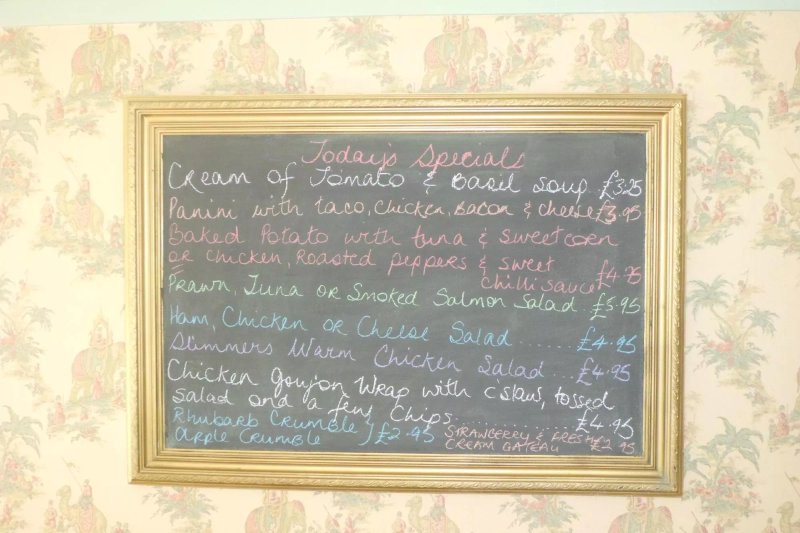 Today's Specials
Cream of Tomato & Basil Soup..£3.25
Panini with taco, chicken, Bacon & cheese £3.95
Baked Potato with tuna & sweetcorn
or chicken, Roasted peppers & sweet
chilli sauce £4.75
Prawn, Tuna or Smoked Salmon Salad..£5.95
Ham, Chicken or Cheese Salad........£4.95
Slimmers Warm Chicken Salad.....£4.95
Chicken Goujon Wrap with c'slaw, tossed
salad and a few chips..................£4.95
Rhubarb Crumble
Apple Crumble } £2.95
STRAWBERRY & FRESH
CREAM GATEAU £2.95